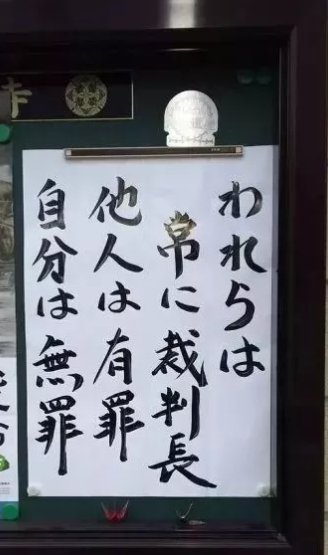 われらは
常に裁判長
他人は有罪
自分は無罪